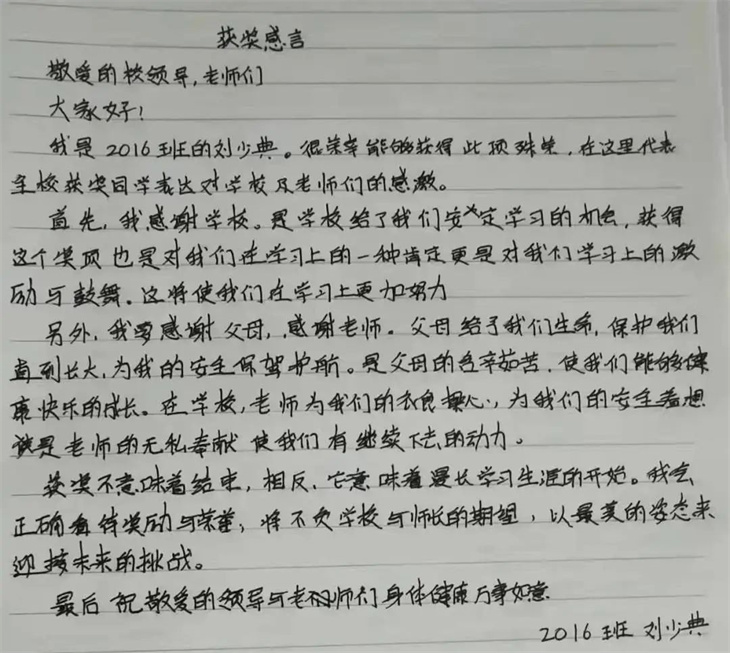 获奖感言
敬爱的校领导,老师们
大家好!
我是2016班的刘少典。很荣幸能够获得此项殊荣,在这里代表
全校获奖同学表达对学校及老师们的感激。
首先,我感谢学校。是学校给了我们安定学习的机会,获得
这个奖项也是对我们在学习上的一种肯定更是对我们学习上的激
励与鼓舞。这将使我们在学习上更加努力
另外,我要感谢父母,感谢老师。父母给了我们生命,保护我们
直到长大,为我的安全保驾护航。是父母的含辛茹苦,使我们能够健
康快乐的成长。在学校,老师为我们的衣食操心,为我们的安全着想
是老师的无私奉献 使我们有继续下去的动力。
获奖不意味着结束,相反,它意味着漫长学习生涯的开始。我会
正确看待奖励与荣誉,将不负学校与师长的期望,以最美的姿态来
迎接未来的挑战。
最后 祝敬爱的领导与老师们身体健康万事如意
2016班 刘少典